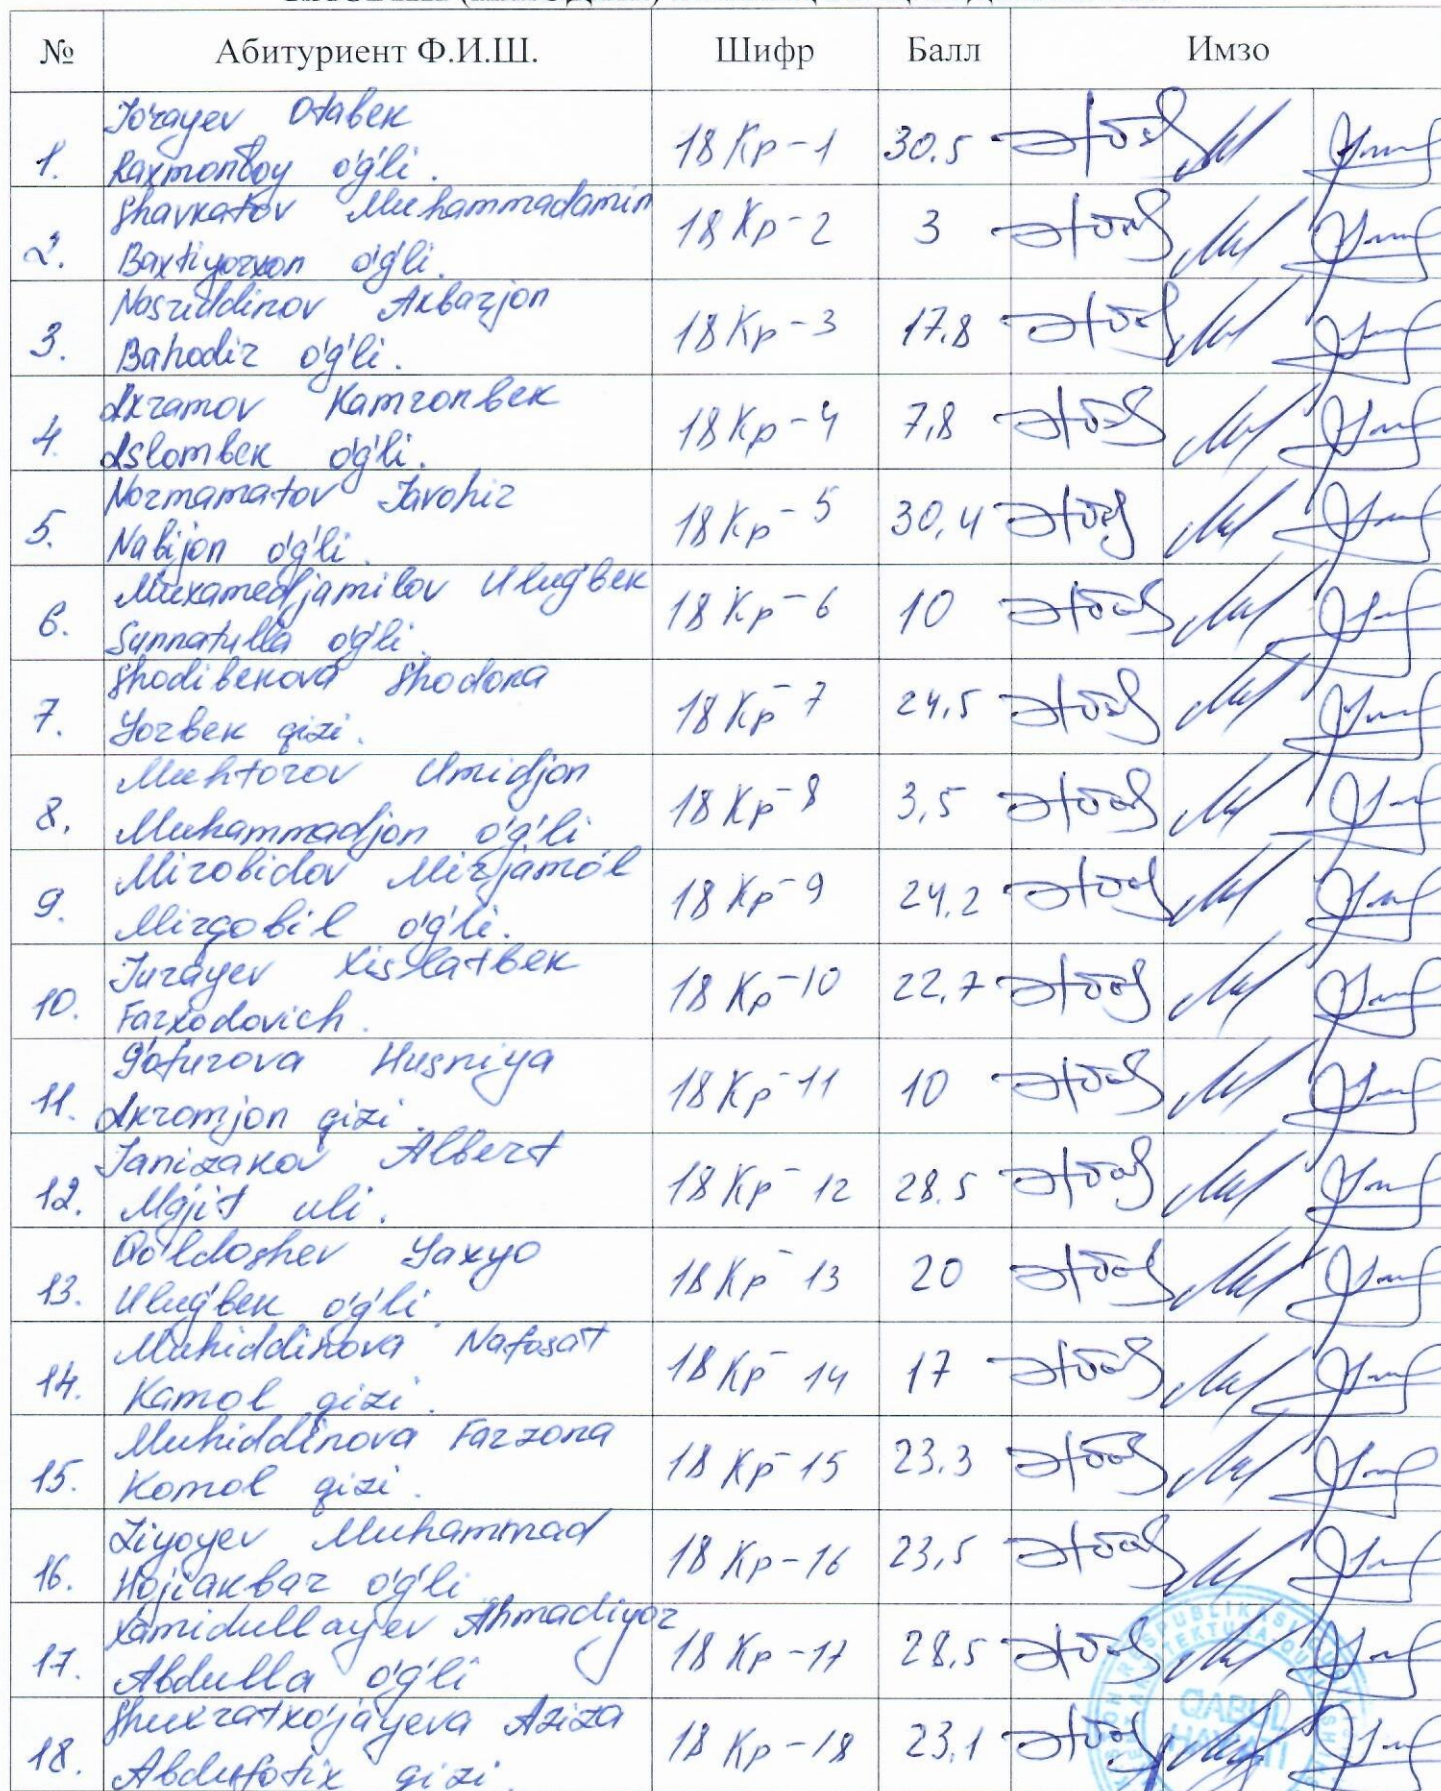 № Абитуриент Ф.И.Ш. Шифр Балл Имзо
Jo'rayev Otabek
1. Raxmonboy o'g'li. 18 Kp-1 30.5
Shavkatov Muhammadamin
2. Baxtiyorxon o'g'li. 18 Kp-2 3
Nasriddinov Akbarjon
3. Bahodir o'g'li. 18 Kp-3 17.8
Akramov Kamronbek
4. Aslombek o'g'li. 18 Kp-4 7,8
Normamatov Javohir
5. Nabijon o'g'li. 18 Kp-5 30,4
Muxamedjamilov Ulug'bek
6. Sunnatulla o'g'li. 18 Kp-6 10
Shodibekova Shodona
7. Yorbek qizi. 18 Kp-7 24,5
Muhtorov Umidjon
8. Muhammadjon o'g'li 18 Kp-8 3,5
Mirobidov Mirjamol
9. Mirqobil o'g'li. 18 Kp-9 24,2
Jurayev Xislatbek
10. Farxodovich. 18 Kp-10 22,7
G'ofurova Husniya
11. Akromjon qizi. 18 Kp-11 10
Janizakov Albert
12. Mgjit uli. 18 Kp-12 28.5
Qo'ldoshev Yaxyo
13. Ulug'bek o'g'li. 18 Kp-13 20
Muhiddinova Nafosat
14. Kamol qizi. 18 Kp-14 17
Muhiddinova Farzona
15. Komol qizi. 18 Kp-15 23.3
Ziyoyev Muhammad
16. Hojiakbar o'g'li 18 Kp-16 23,5
Xamidullayev Ahmadiyor
17. Abdulla o'g'li 18 Kp-17 28,5
Shuxratxo'jayeva Aziza
18. Abdufotix qizi. 18 Kp-18 23,1
QABUL
HAY'ATI